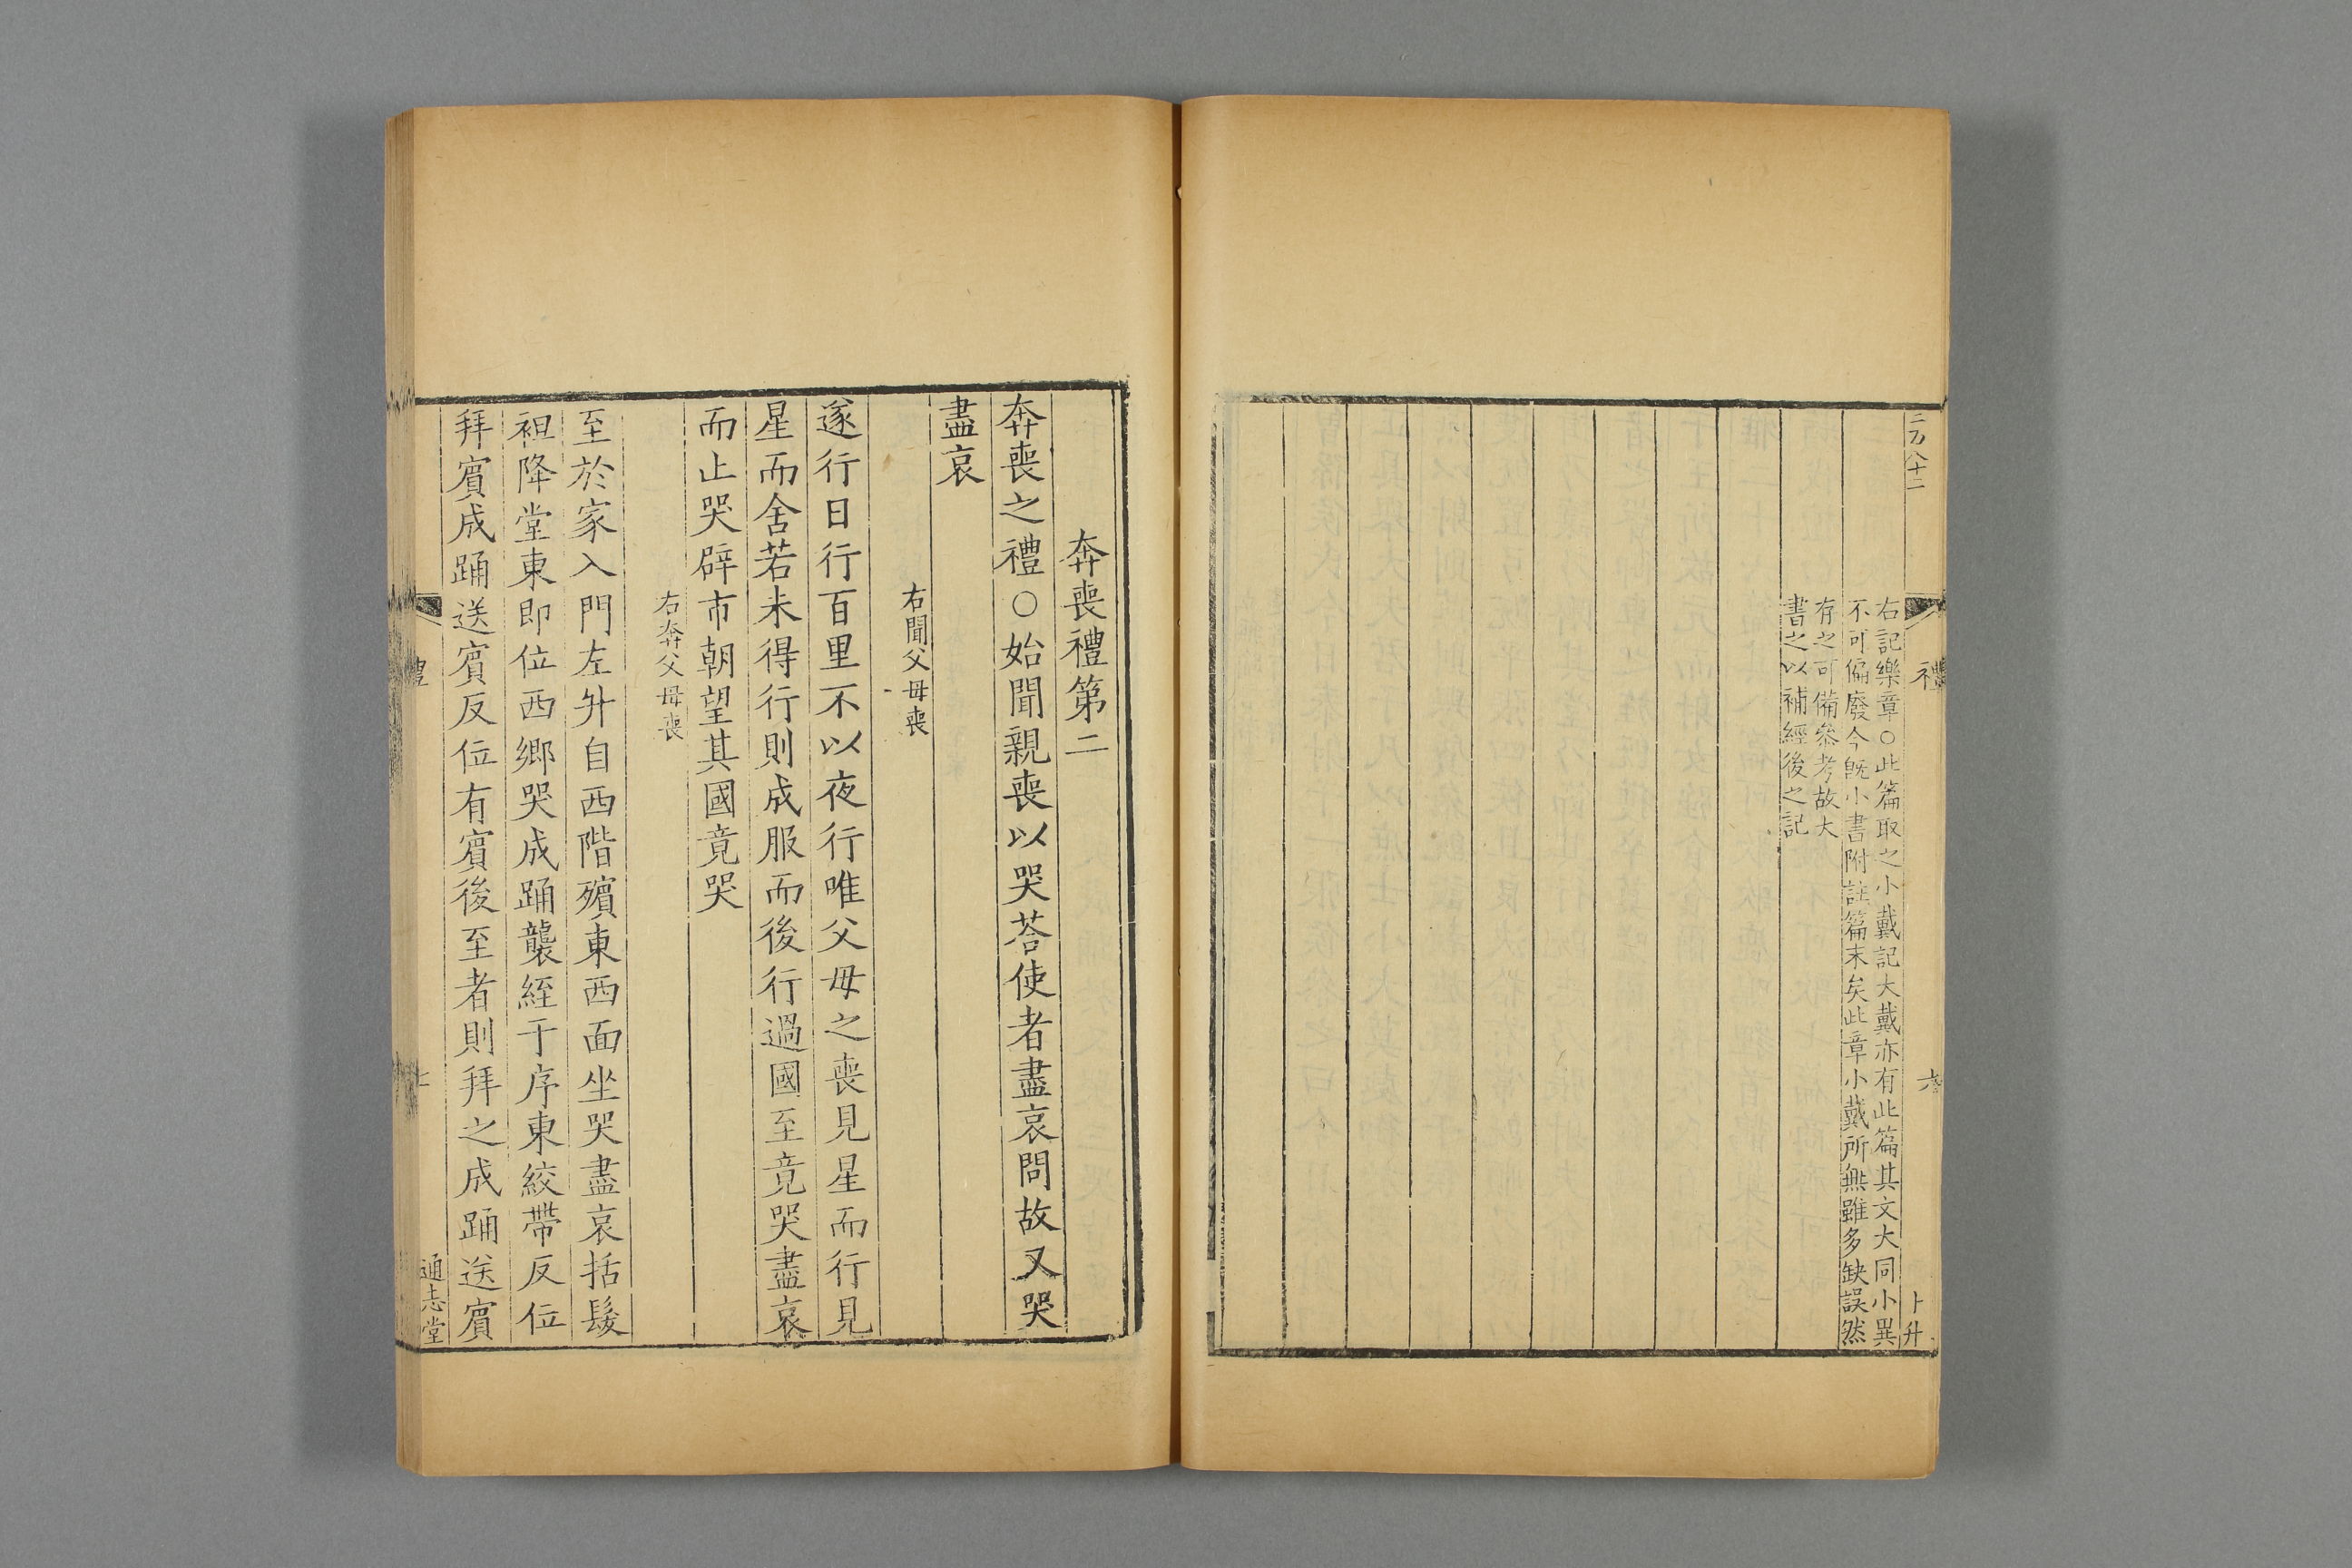 二百八十二
禮
六
卜升
右記樂章○此篇取之小戴記大戴亦有此篇其文大同小異
不可偏廢今旣小書附註篇末矣此章小戴所無雖多缺誤然
有之可備叅考故大
書之以補經後之記
奔喪禮第二
奔喪之禮○始聞親喪以哭荅使者盡哀問故又哭
盡哀
右聞父母喪
遂行日行百里不以夜行唯父母之喪見星而行見
星而舍若未得行則成服而後行過國至竟哭盡哀
而止哭辟市朝望其國竟哭
右奔父母喪
至於家入門左升自西階殯東西面坐哭盡哀括髮
袒降堂東即位西鄉哭成踊襲絰于序東絞帶反位
拜賔成踊送賔反位有賔後至者則拜之成踊送賔
禮
通志堂